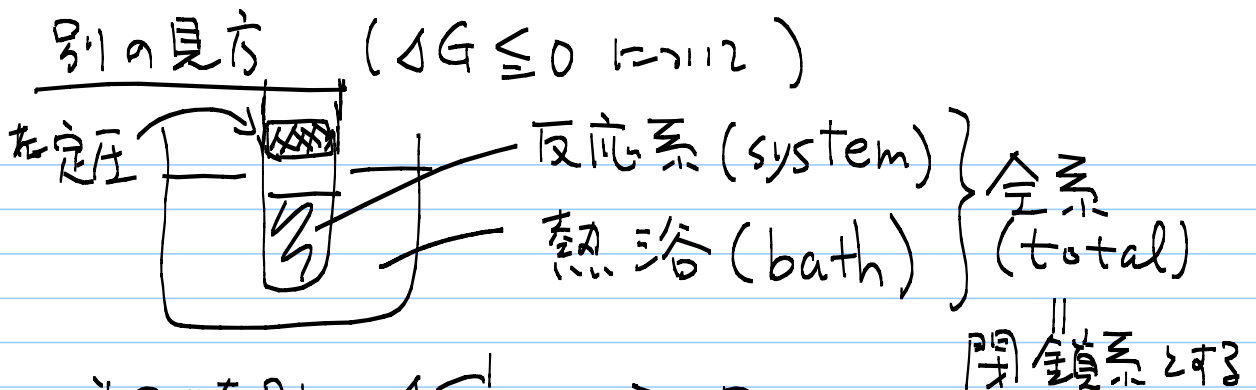 別の見方 (ΔG ≦ 0 について)
定圧
反応系 (system)
熱浴 (bath)
全系
(total)
||
閉鎖系とする